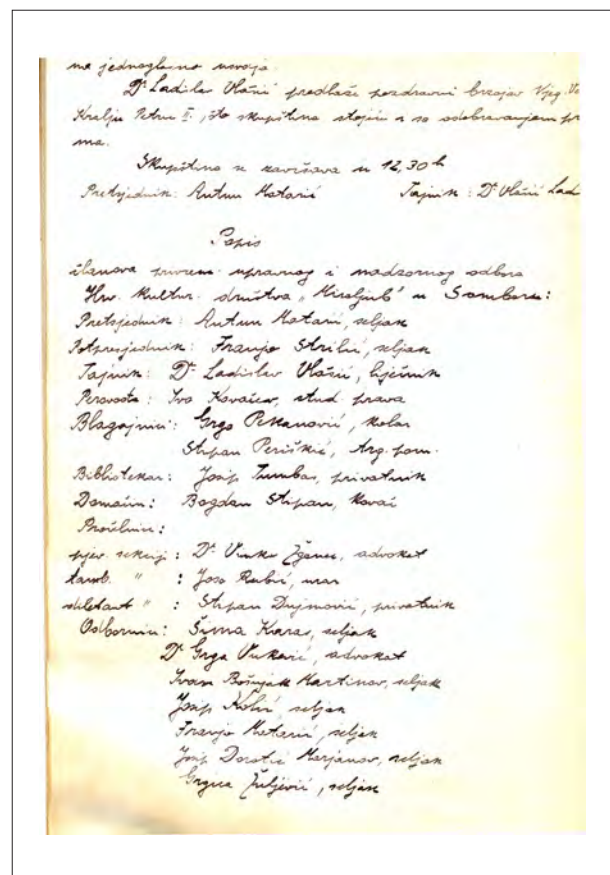 ma jednoglasno usvaja.
Dr. Ladislav Vlašić predlaže pozdravni brzojav Njeg. Ve
Kralju Petru II., što skupština stojeći i sa odobravanjem pr
ma.
Skupština se završava u 12,30 h
Pretsjednik: Antun Matarić Tajnik: Dr. Vlašić Lad
Popis
članova privrem. upravnog i nadzornog odbora
Hrv. Kultur. društva „Miroljub" u Somboru:
Pretsjednik: Antun Matarić, seljak
Potpresjednik: Franjo Strilić, seljak
Tajnik: Dr. Ladislav Vlašić, liječnik
Perovođa: Ivo Kovačev, stud. prava
Blagajnici: Grgo Pekanović, kolar
Stipan Periškić, trg. pom.
Bibliotekar: Josip Tumbas, privatnik
Domaćin: Bogdan Stipan, kovač
Pročelnici:
pjev. sekciji: Dr. Vinko Žganec, advokat
tamb. " : Joso Rubić,
diletant " : Stipan Dujmović, privatnik
Odbornici: Šima Karas, seljak
Dr. Grga Vuković, advokat
Ivan Bošnjak Martinov, seljak
Josip Kolić, seljak
Franjo Matarić, seljak
Josip Dorotić Marjanov, seljak
Grgica Žuljević, seljak